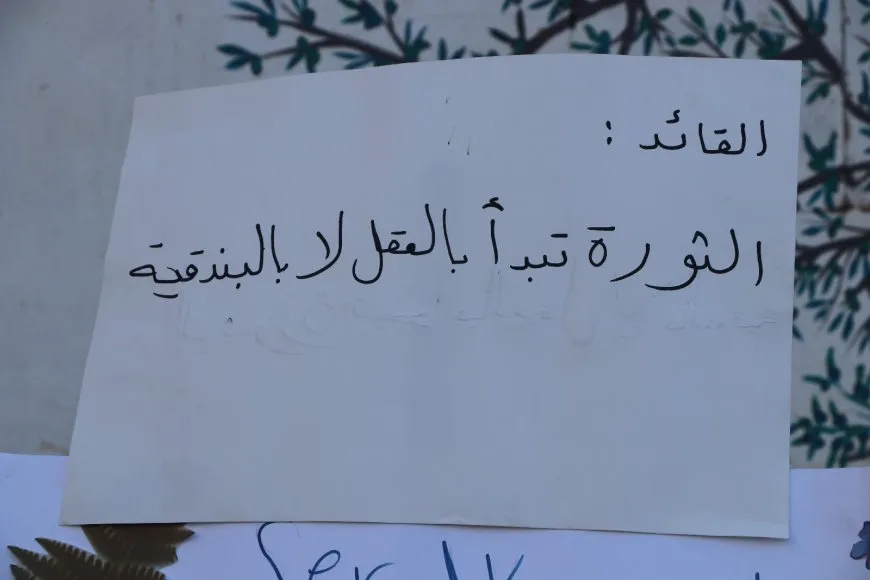 القائد :
الثورة تبدأ بالعقل لا بالبندقية
Ser